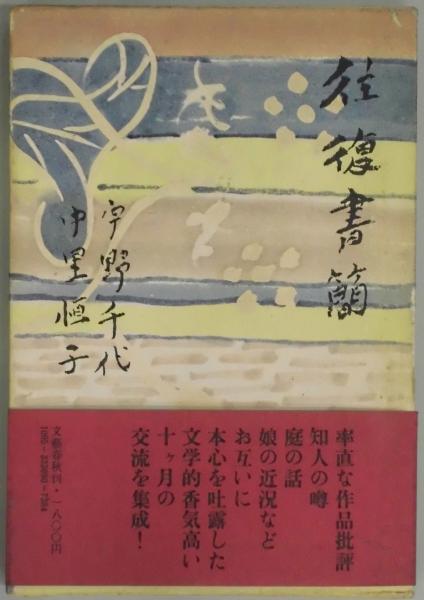 往復書簡
宇野千代
中里恒子
率直な作品批評
知人の噂
庭の話
娘の近況など
お互いに
本心を吐露した
文学的香気高い
十ヶ月の
交流を集成！
文藝春秋刊・一八〇〇円